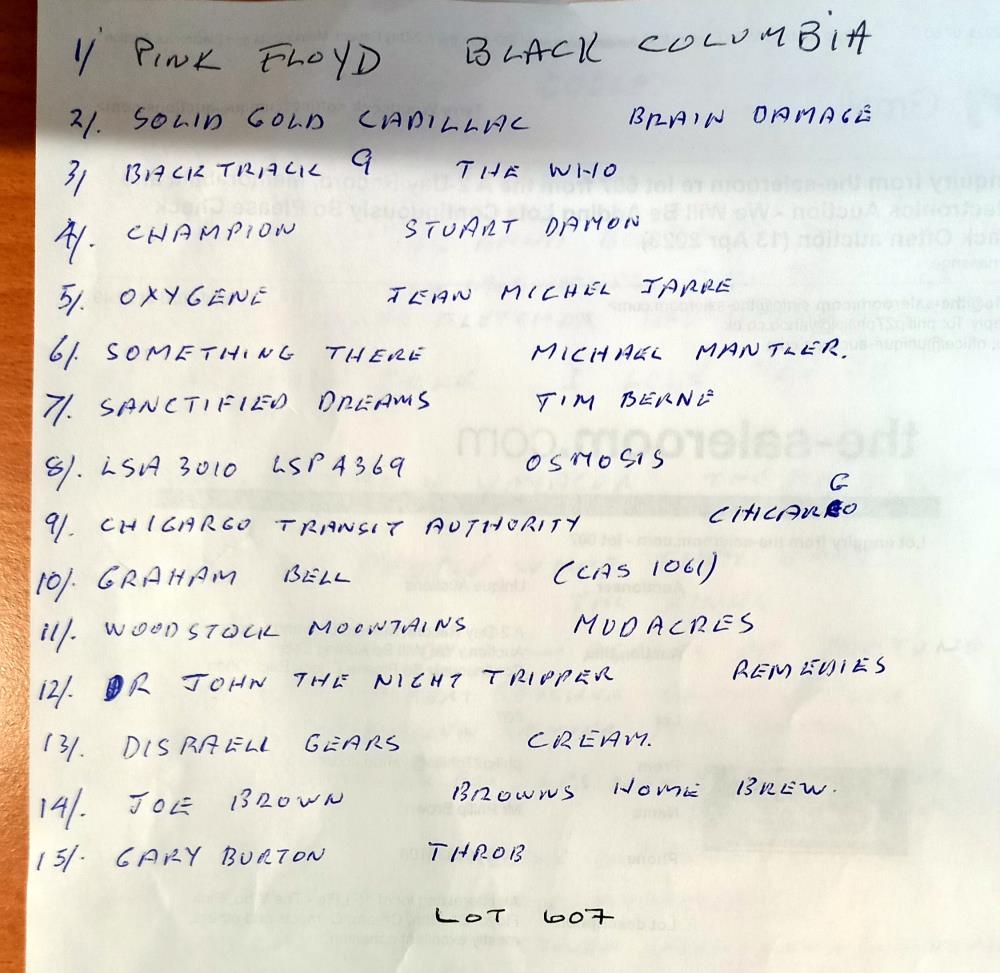 1/ PINK FLOYD BLACK COLUMBIA
2/. SOLID GOLD CADILLAC BRAIN DAMAGE
3/ BACKTRACK 9 THE WHO
4/. CHAMPION STUART DAMON
5/. OXYGENE JEAN MICHEL JARRE
6/. SOMETHING THERE MICHAEL MANTLER.
7/. SANCTIFIED DREAMS TIM BERNE
8/. LSA 3010 LSP 4369 OSMOSIS
G
9/. CHICARGO TRANSIT AUTHORITY CHICARGO
10/. GRAHAM BELL (CAS 1061)
11/. WOODSTOCK MOONTAINS MUDACRES
12/. DR JOHN THE NIGHT TRIPPER REMEDIES
13/. DISRAELI GEARS CREAM.
14/. JOE BROWN BROWNS HOME BREW.
15/. GARY BURTON THROB
LOT 607
the-saleroom.com